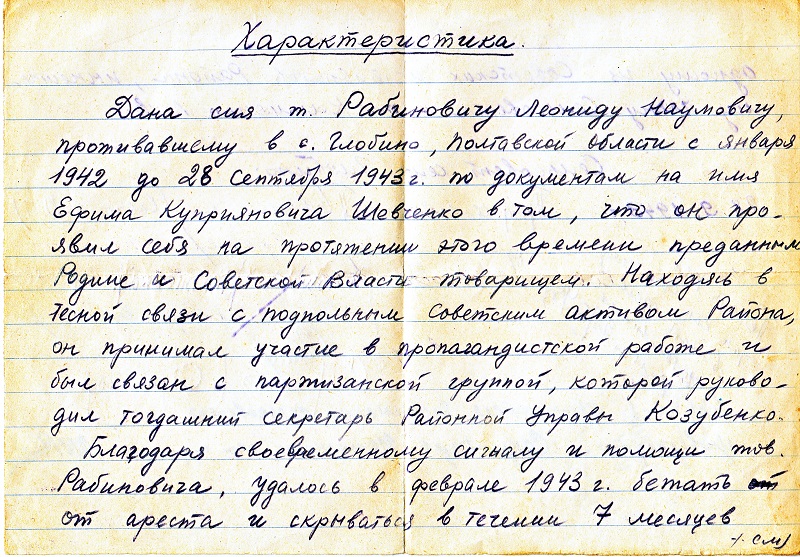 Характеристика.
Дана сия т. Рабиновичу Леониду Наумовичу,
проживавшему в с. Глобино, Полтавской области с января
1942 до 28 сентября 1943 г. по документам на имя
Ефима Куприяновича Шевченко в том, что он про-
явил себя на протяжении этого времени преданным
Родине и Советской Власти товарищем. Находясь в
тесной связи с подпольным советским активом Района,
он принимал участие в пропагандистской работе и
был связан с партизанской группой, которой руково-
дил тогдашний секретарь Районной Управы Козубенко.
Благодаря своевременному сигналу и помощи тов.
Рабиновича, удалось в феврале 1943 г. бежать от
от ареста и скрываться в течении 7 месяцев
/. см/